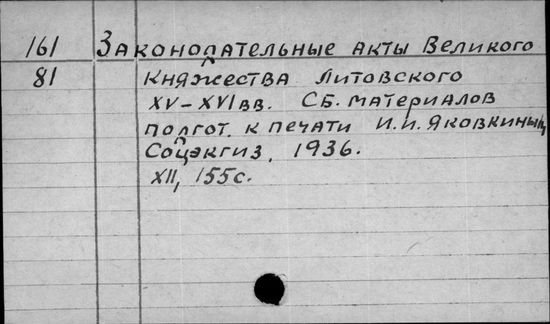 161 Законодательные акты Великого
81 Княжества Литовского
XV–XVI вв. Сб. материалов
подгот. к печати И.И. Яковкиным,
Соцэкгиз, 1936.
XII, 155с.